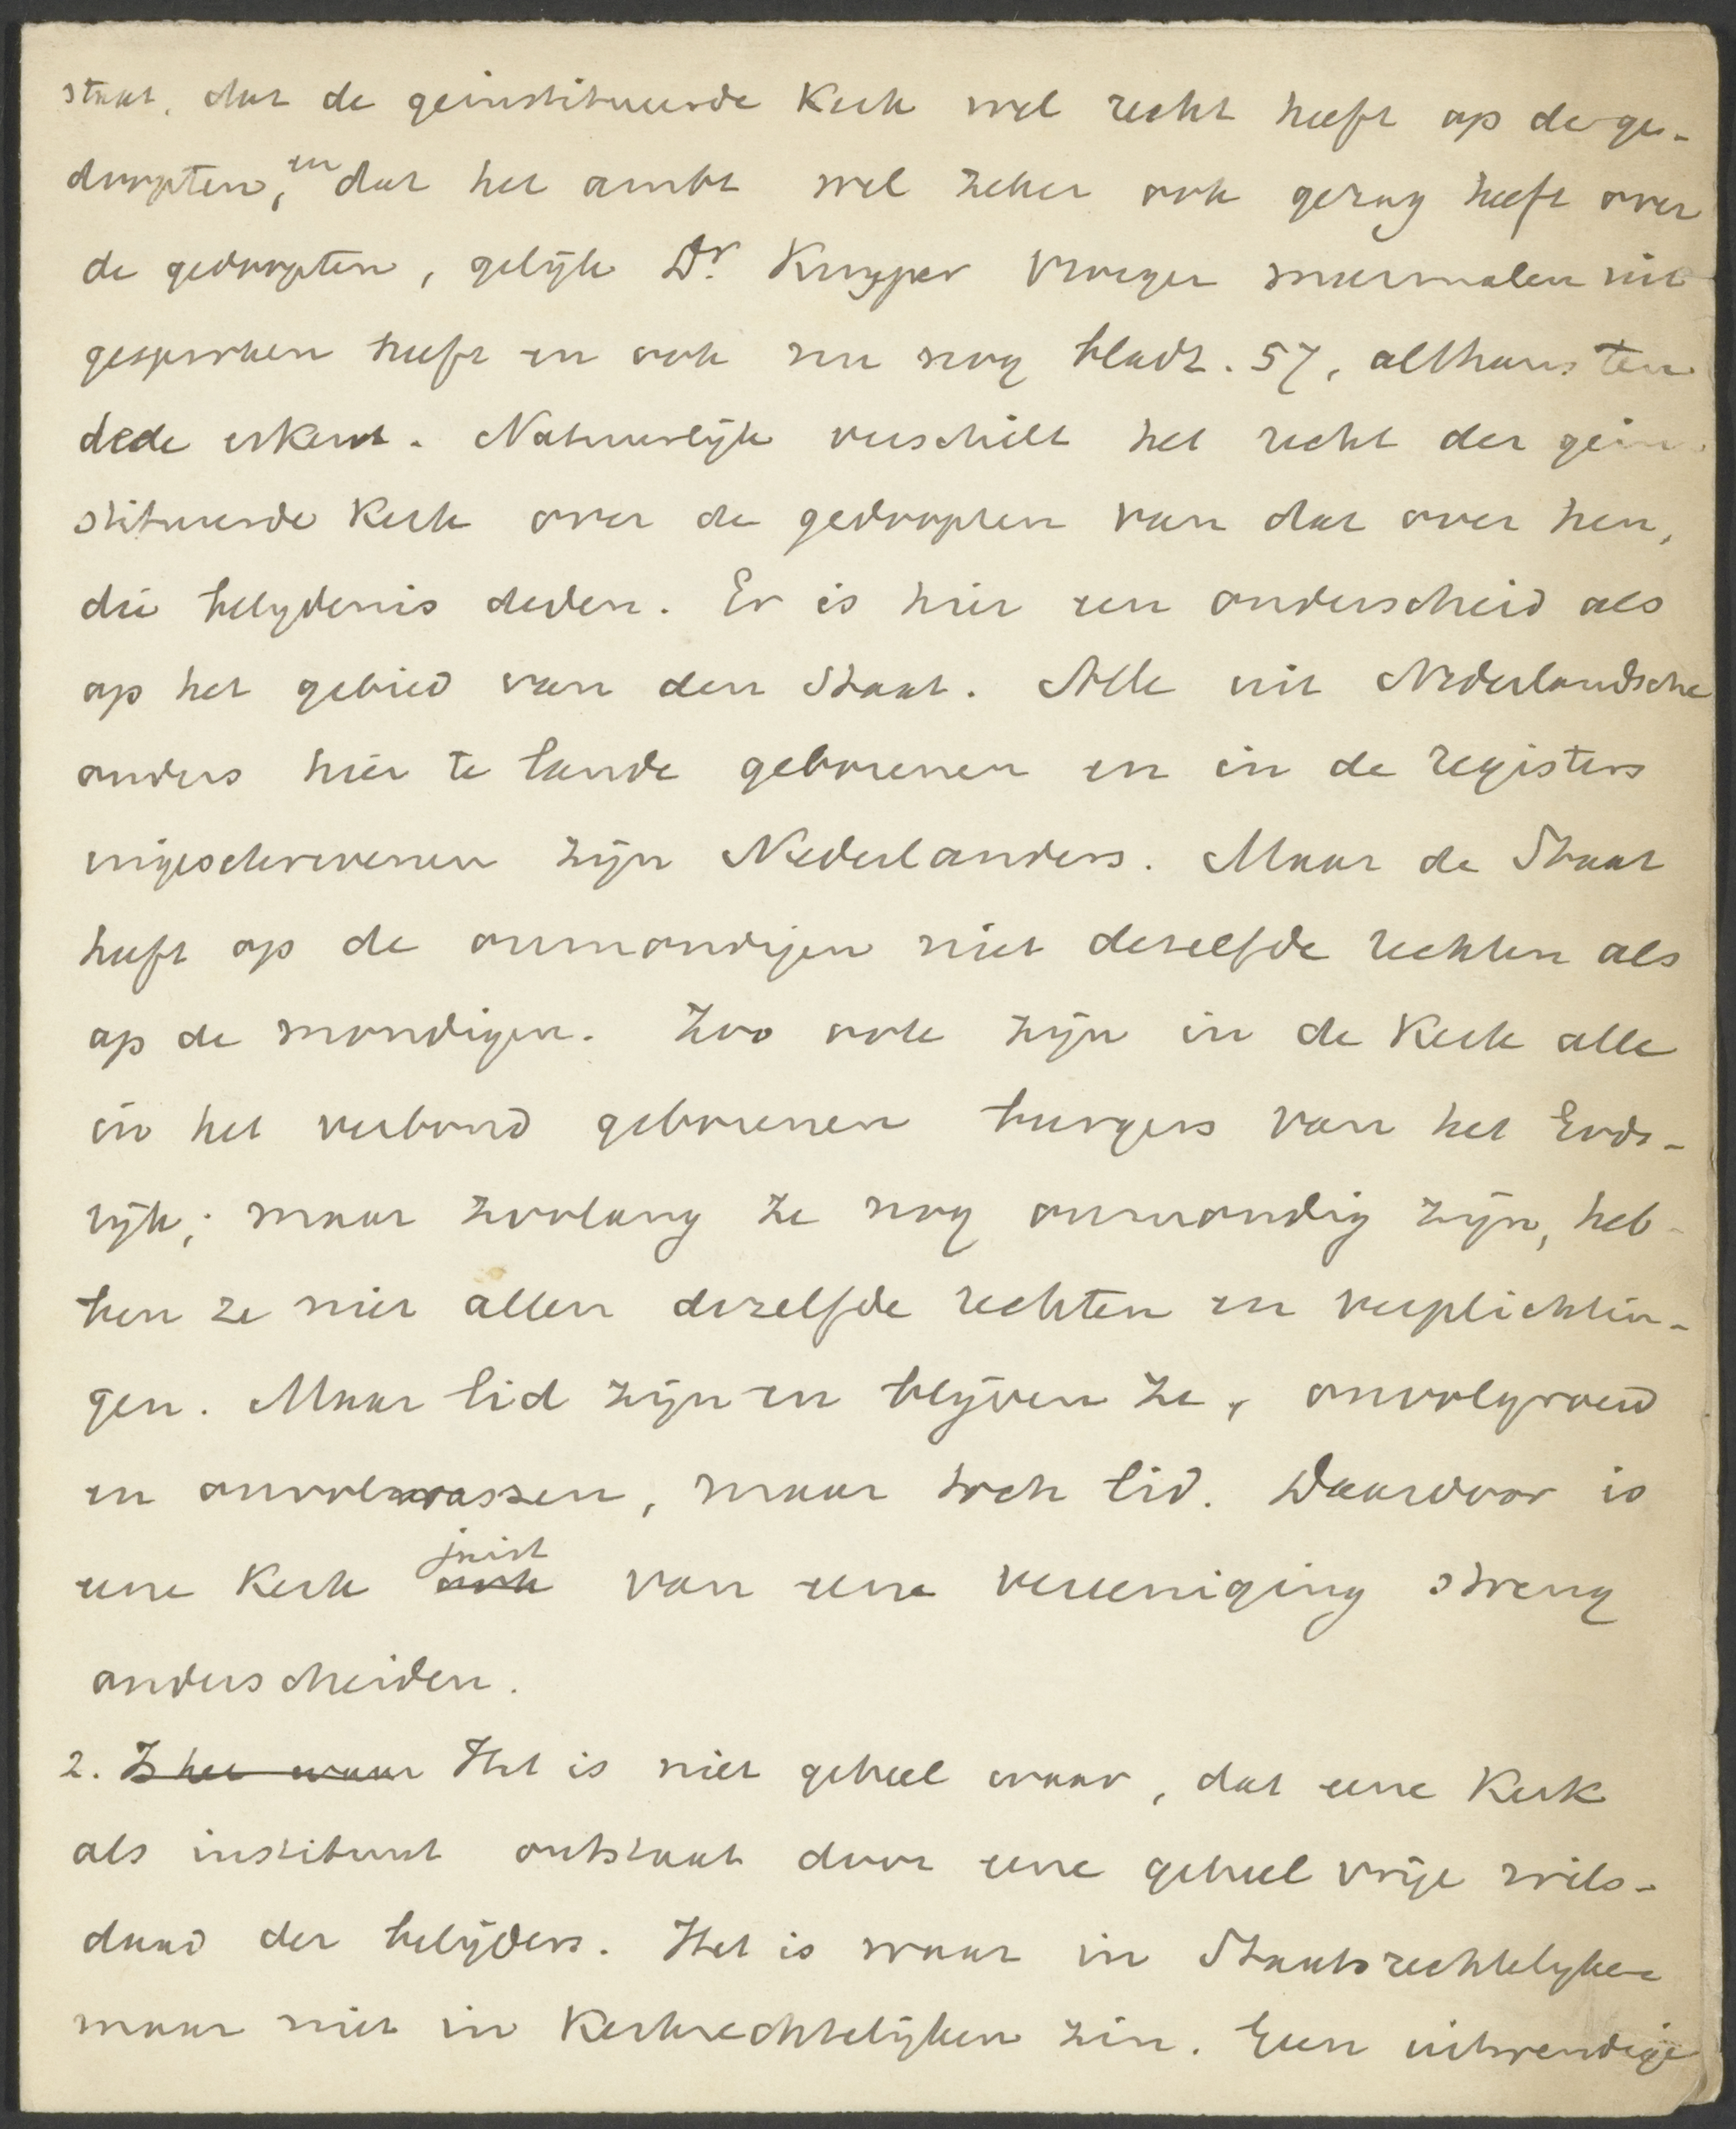 staat, dat de geinstitueerde Kerk wel recht heeft op de ge-
doopten, en dat het ambt wel zeker ook gezag heeft over
de gedoopten, gelijk Dr. Kuyper vroeger meermalen uit
gesproken heeft en ook nu nog bladz. 57, althans ten
dele erkent. Natuurlijk verschilt het recht der gein-
stitueerde Kerk over de gedoopten van dat over hen,
die belydenis deden. Er is hier een onderscheid als
op het gebied van den Staat. Alle uit Nederlandsche
ouders hier te lande geborenen en in de registers
ingeschrevenen zijn Nederlanders. Maar de Staat
heeft op de onmondigen niet dezelfde rechten als
op de mondigen. Zoo ook zijn in de Kerk alle
in het verbond geborenen burgers van het Gods-
rijk; maar zoolang ze nog onmondig zijn, heb-
ben ze niet allen dezelfde rechten en verplichtin-
gen. Maar lid zijn en blijven ze, onvolgroeid
en onvolwassen, maar toch lid. Daardoor is
eene Kerk ook juist van eene vereeniging streng
onderscheiden.
2. Is het waar Het is niet geheel waar, dat eene Kerk
als instituut ontstaat door eene geheel vrije wils-
daad der belijders. Het is waar in Staatsrechtelyken
maar niet in Kerkrechtelijken zin. Een uitwendige